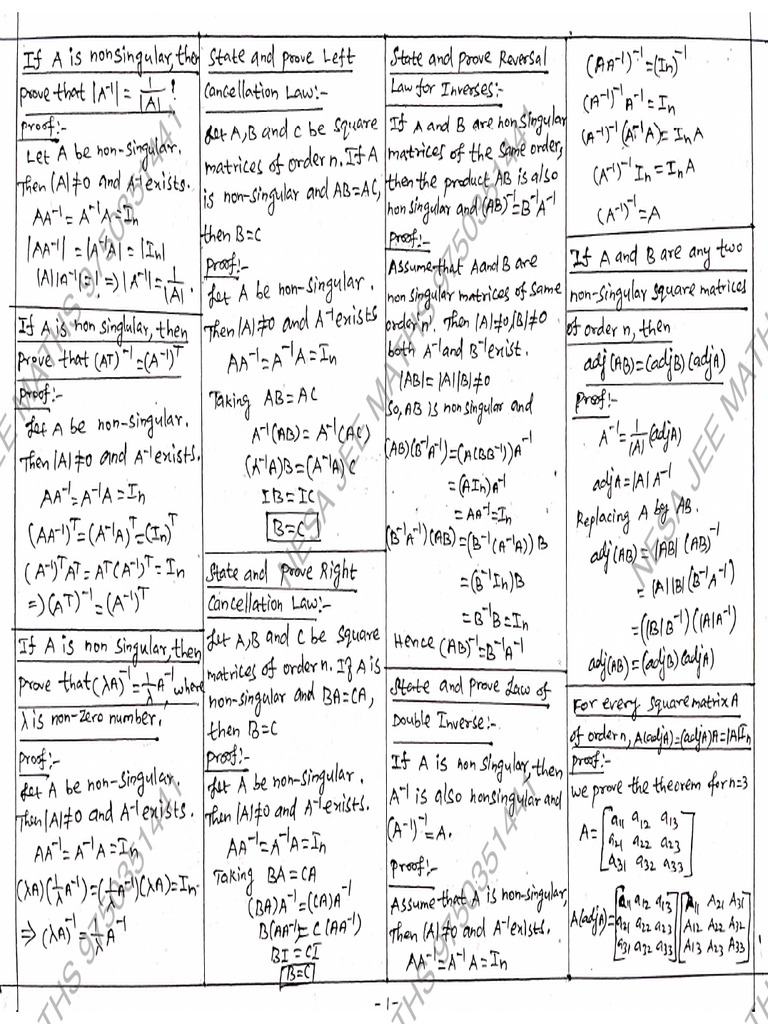 If A is nonsingular, then
prove that |A⁻¹| = 1/|A| !
Proof:-
Let A be non-singular.
Then |A|≠0 and A⁻¹ exists.
AA⁻¹ = A⁻¹A = In
|AA⁻¹| = |A⁻¹A| = |In|
|A||A⁻¹| = 1 => |A⁻¹| = 1/|A|.
If A is non singlular, then
prove that (AT)⁻¹ = (A⁻¹)ᵀ
Proof:-
Let A be non-singular.
Then |A|≠0 and A⁻¹ exists.
AA⁻¹ = A⁻¹A = In
(AA⁻¹)ᵀ = (A⁻¹A)ᵀ = (In)ᵀ
(A⁻¹)ᵀAᵀ = Aᵀ(A⁻¹)ᵀ = In
=> (Aᵀ)⁻¹ = (A⁻¹)ᵀ
If A is non Singular, then
prove that (λA)⁻¹ = 1/λ A⁻¹, where
λ is non-zero number.
Proof:-
Let A be non-Singular.
Then |A|≠0 and A⁻¹ exists.
AA⁻¹ = A⁻¹A = In
(λA)(1/λ A⁻¹) = (1/λ A⁻¹)(λA) = In
⇒ (λA)⁻¹ = 1/λ A⁻¹
State and prove Left
Cancellation Law:-
Let A, B and C be square
matrices of order n. If A
is non-singular and AB=AC,
then B=C
Proof:-
Let A be non-singular.
Then |A|≠0 and A⁻¹ exists
AA⁻¹ = A⁻¹A = In
Taking AB = AC
A⁻¹(AB) = A⁻¹(AC)
(A⁻¹A)B = (A⁻¹A)C
IB = IC
B=C
State and Prove Right
Cancellation Law:-
Let A, B and C be square
matrices of order n. If A is
non-singular and BA=CA,
then B=C
Proof:-
Let A be non-Singular.
Then |A|≠0 and A⁻¹ exists.
AA⁻¹ = A⁻¹A = In
Taking BA = CA
(BA)A⁻¹ = (CA)A⁻¹
B(AA⁻¹) = C(AA⁻¹)
BI = CI
B=C
State and prove Reversal
Law for Inverses:-
If A and B are non singular
matrices of the same order,
then the product AB is also
non singular and (AB)⁻¹ = B⁻¹A⁻¹
Proof:-
Assume that A and B are
non singular matrices of same
order 'n'. Then |A|≠0, |B|≠0
both A⁻¹ and B⁻¹ exist.
|AB| = |A||B| ≠ 0
So, AB is non singular and
(AB)(B⁻¹A⁻¹) = (A(BB⁻¹))A⁻¹
= (AIn)A⁻¹
= AA⁻¹ = In
(B⁻¹A⁻¹)(AB) = (B⁻¹(A⁻¹A))B
= (B⁻¹In)B
= B⁻¹B = In
Hence (AB)⁻¹ = B⁻¹A⁻¹
State and prove Law of
Double Inverse:-
If A is non singular, then
A⁻¹ is also nonsingular and
(A⁻¹)⁻¹ = A.
Proof:-
Assume that A is non-singular,
Then |A|≠0 and A⁻¹ exists.
AA⁻¹ = A⁻¹A = In
(AA⁻¹)⁻¹ = (In)⁻¹
(A⁻¹)⁻¹A⁻¹ = In
(A⁻¹)⁻¹(A⁻¹A) = InA
(A⁻¹)⁻¹In = InA
(A⁻¹)⁻¹ = A
If A and B are any two
non-singular square matrices
of order n, then
adj(AB) = (adjB)(adjA)
Proof:-
A⁻¹ = 1/|A| (adjA)
adjA = |A|A⁻¹
Replacing A by AB.
adj(AB) = |AB|(AB)⁻¹
= |A||B|(B⁻¹A⁻¹)
= (|B|B⁻¹)(|A|A⁻¹)
adj(AB) = (adjB)(adjA)
For every square matrix A
of order n, A(adjA)=(adjA)A=|A|In
Proof:-
we prove the theorem for n=3
A = [a11 a12 a13
a21 a22 a23
a31 a32 a33]
A(adjA) = [a11 a12 a13 a21 a22 a23 a31 a32 a33] [A11 A21 A31 A12 A22 A32 A13 A23 A33]
-1-
NESA JEE MATHS 9750351441